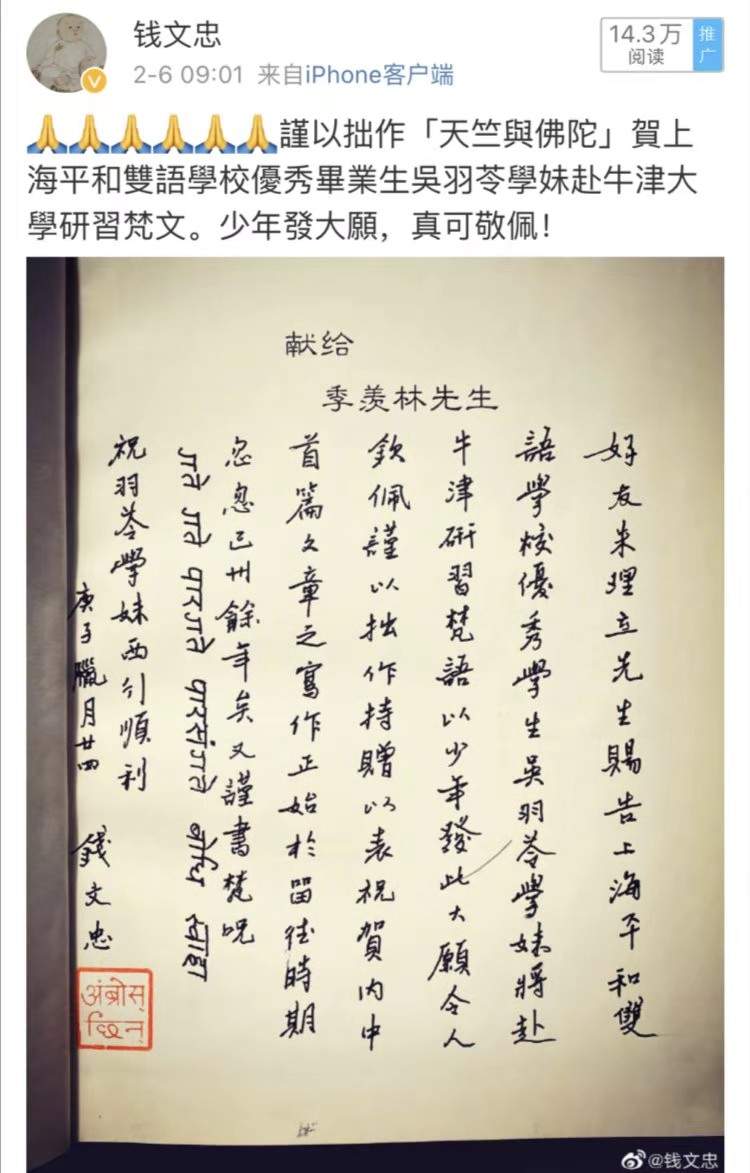 钱文忠
2-6 09:01 来自iPhone客户端
14.3万
阅读
推广
🙏🙏🙏🙏🙏🙏謹以拙作「天竺與佛陀」賀上
海平和雙語學校優秀畢業生吳羽苓學妹赴牛津大
學研習梵文。少年發大願，真可敬佩！
献给
季羡林先生
好友朱理立先生賜告上海平和雙
語學校優秀學生吳羽苓學妹將赴
牛津研習梵語以少年發此大願令人
欽佩謹以拙作持贈以表祝賀內中
首篇文章之寫作正始於留德時期
忽忽已卅餘年矣又謹書梵呪
गते गते पारगते पारसंगते बोधि स्वाहा
祝羽苓學妹西行順利
庚子臘月廿四 錢文忠
अंब्रोस्
छिन्
@钱文忠